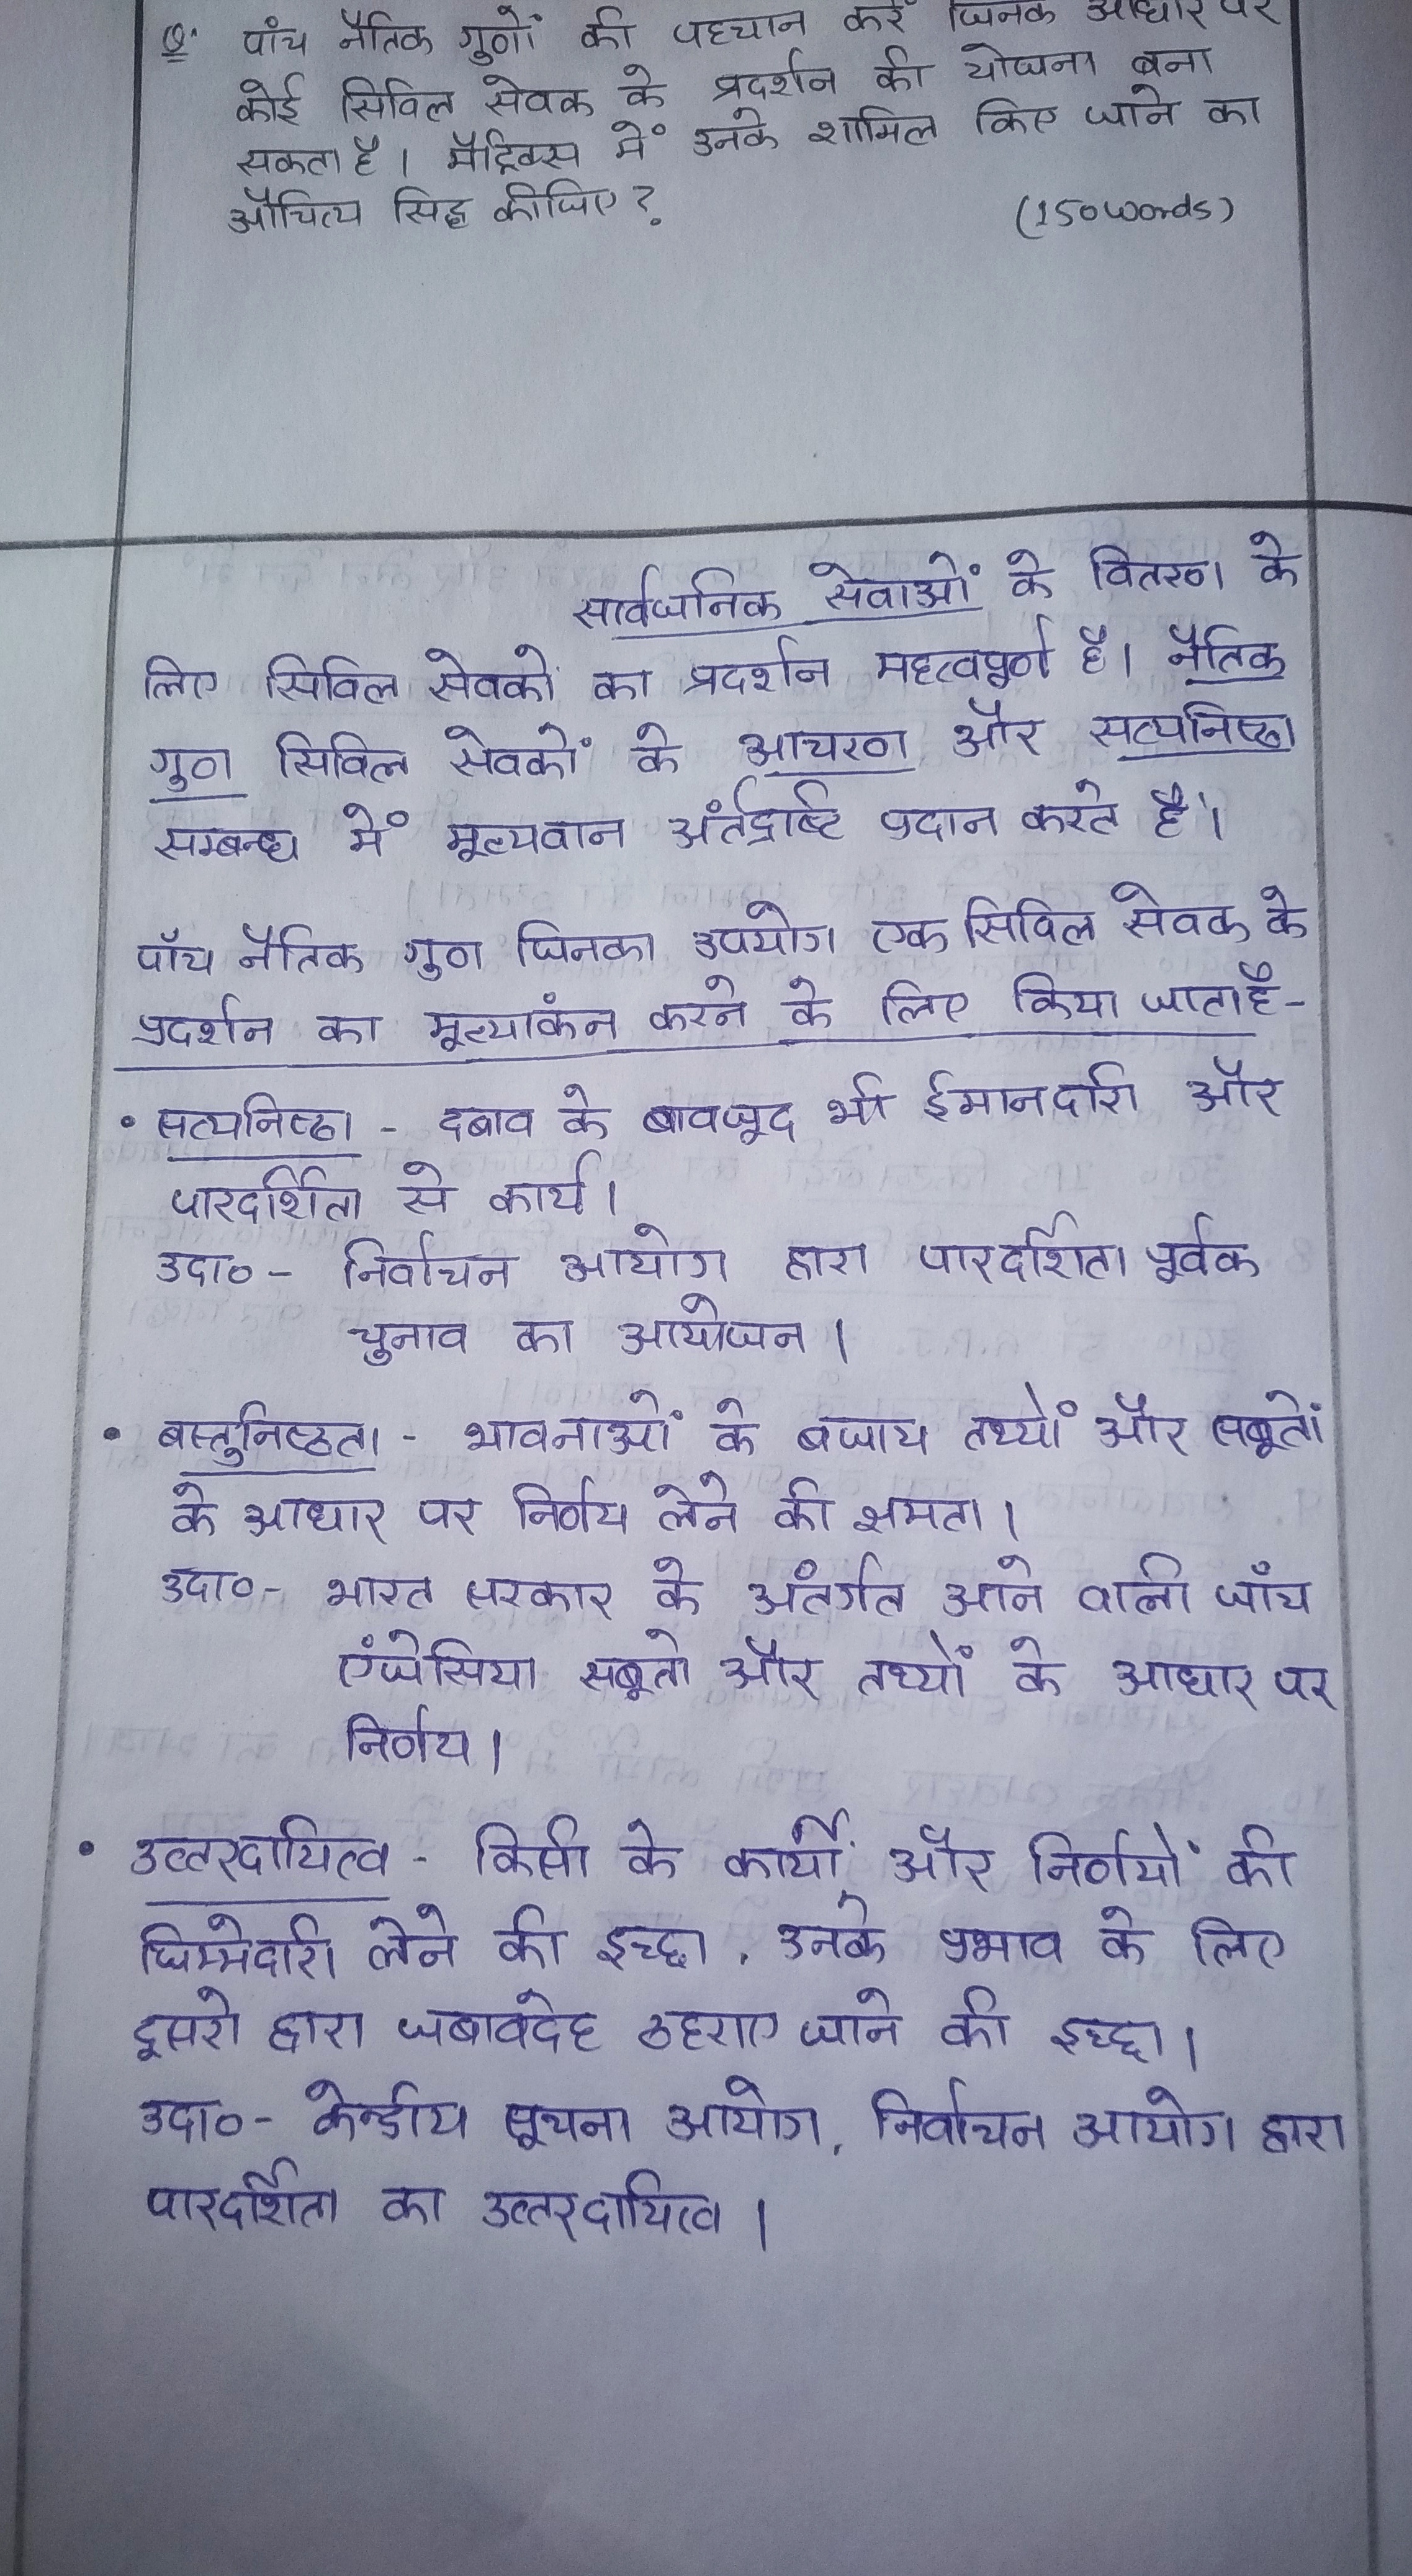 Q. पांच नैतिक गुणों की पहचान करें जिनके आधार पर
कोई सिविल सेवक के प्रदर्शन की योजना बना
सकता है। मैट्रिक्स में उनके शामिल किए जाने का
औचित्य सिद्ध कीजिए?
(150 words)
सार्वजनिक सेवाओं के वितरण के
लिए सिविल सेवकों का प्रदर्शन महत्वपूर्ण है। नैतिक
गुण सिविल सेवकों के आचरण और सत्यनिष्ठा
सम्बन्ध में मूल्यवान अंर्तद्रष्टि प्रदान करते है।
पाँच नैतिक गुण जिनका उपयोग एक सिविल सेवक के
प्रदर्शन का मूल्याकंन करने के लिए किया जाता है-
• सत्यनिष्ठा - दबाव के बावजूद भी ईमानदारी और
पारदर्शिता से कार्य।
उदा०- निर्वाचन आयोग द्वारा पारदर्शिता पूर्वक
चुनाव का आयोजन।
• बस्तुनिष्ठता - भावनाओं के बजाय तथ्यों और सबूतों
के आधार पर निर्णय लेने की क्षमता।
उदा०- भारत सरकार के अंतर्गत आने वाली जाँच
एंजेसिया सबूतो और तथ्यों के आधार पर
निर्णय।
• उत्तरदायित्व - किसी के कार्यों, और निर्णयों की
जिम्मेदारी लेने की इच्छा, उनके प्रभाव के लिए
दूसरो द्वारा जबावदेह ठहराए जाने की इच्छा।
उदा०- केन्द्रीय सूचना आयोग, निर्वाचन आयोग द्वारा
पारदर्शिता का उत्तरदायित्व।